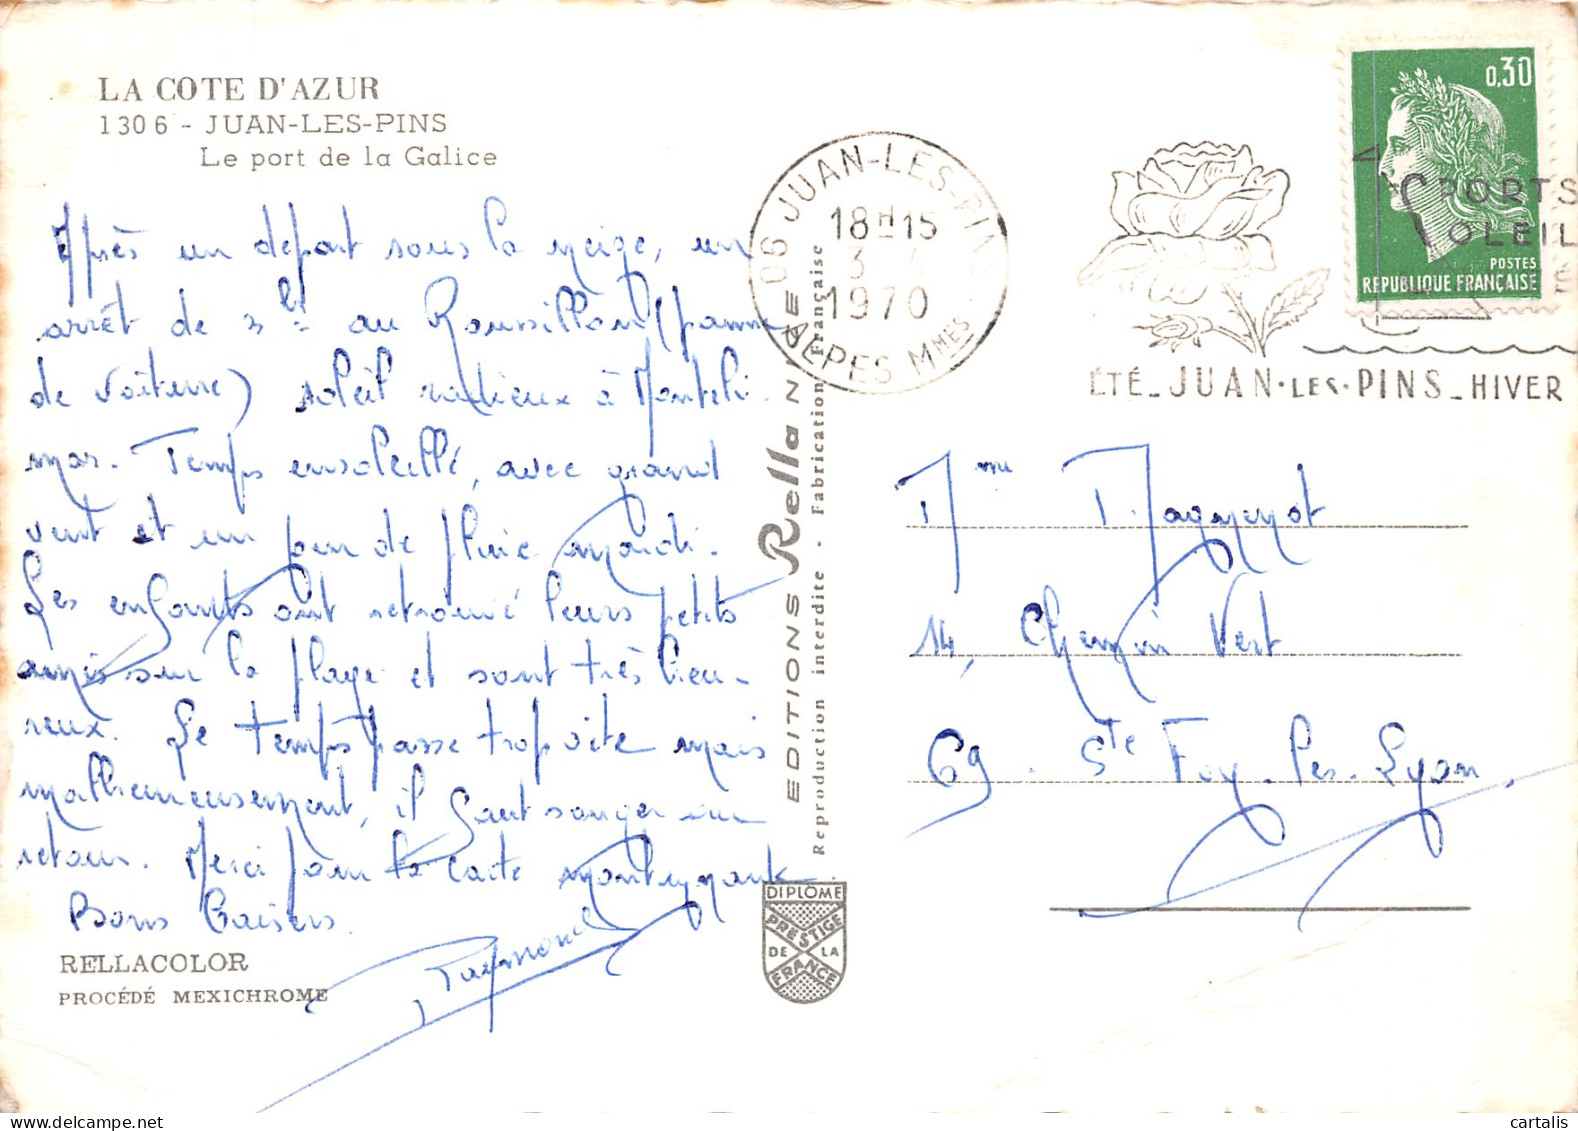 LA COTE D'AZUR
1306 - JUAN-LES-PINS
Le port de la Galice
Après un départ sous la neige, un
arrêt de 3 h au Roussillon (panne
de voiture) soleil radieux à Monteli-
mar. Temps ensoleillé, avec grand
vent et un peu de pluie mardi.
Les enfants ont retrouvé leurs petits
amis sur la plage et sont très heu-
reux. Le temps passe trop vite mais
malheureusement, il faut songer au
retour. Merci pour la carte
Bons baisers
Raymond
RELLACOLOR
PROCÉDÉ MEXICHROME
EDITIONS Rella NICE
Reproduction interdite - Fabrication Française
DIPLOME
PRESTIGE
DE LA
FRANCE
06 JUAN-LES-PINS
18H15
3
1970
ALPES MMES
ÉTÉ_JUAN·LES·PINS_HIVER
SPORTS
SOLEIL
0,30
POSTES
REPUBLIQUE FRANÇAISE
Mme Magnenot
14, Chemin Vert
69. Ste Foy-les-Lyon
cartalis.delcampe.net